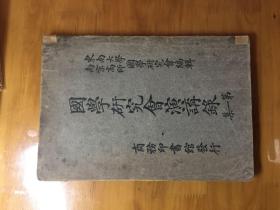 東南大學
南京高師
國學研究會編輯
國學研究會演講錄
第一集
商務印書館發行